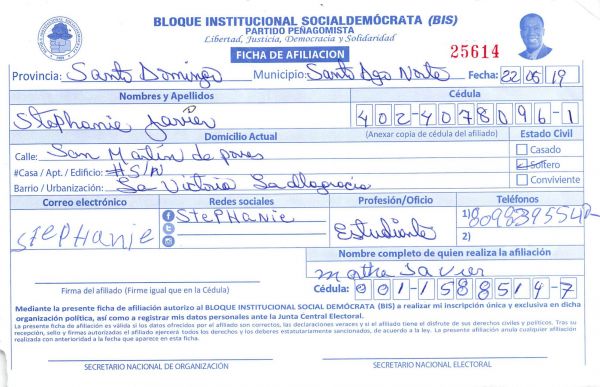 BLOQUE INSTITUCIONAL SOCIALDEMÓCRATA (BIS)
PARTIDO PEÑAGOMISTA
Libertad, Justicia, Democracia y Solidaridad
FICHA DE AFILIACION
25614
Provincia: Santo Domingo Municipio: Santo Dgo Norte Fecha: 22 05 19
Nombres y Apellidos Cédula
Stephanie Javier 402-4078096-1
Domicilio Actual (Anexar copia de cédula del afiliado) Estado Civil
Calle: San Martín de pores Casado
#Casa / Apt. / Edificio: #S/N Soltero
Barrio / Urbanización: La Victoria Conviviente
Correo electrónico Redes sociales Profesión/Oficio Teléfonos
Stephanie StepHanie Estudiante 1)
2)
Nombre completo de quien realiza la afiliación
Martha Javier
Firma del afiliado (Firme igual que en la Cédula) Cédula: 001-1588514-7
Mediante la presente ficha de afiliación autorizo al BLOQUE INSTITUCIONAL SOCIAL DEMÓCRATA (BIS) a realizar mi inscripción única y exclusiva en dicha
organización política, así como a registrar mis datos personales ante la Junta Central Electoral.
La presente ficha de afiliación es válida si los datos ofrecidos por el afiliado son correctos, las declaraciones veraces y si el afiliado tiene el disfrute de sus derechos civiles y políticos. Tras su
recepción, sello y firmas autorizados el afiliado ejercerá todos los derechos y los deberes estatutariamente sancionados, de acuerdo a la ley. La presente afiliación anula cualquier afiliación
realizada con anterioridad a la fecha que aparece en esta ficha.
SECRETARIO NACIONAL DE ORGANIZACIÓN SECRETARIO NACIONAL ELECTORAL